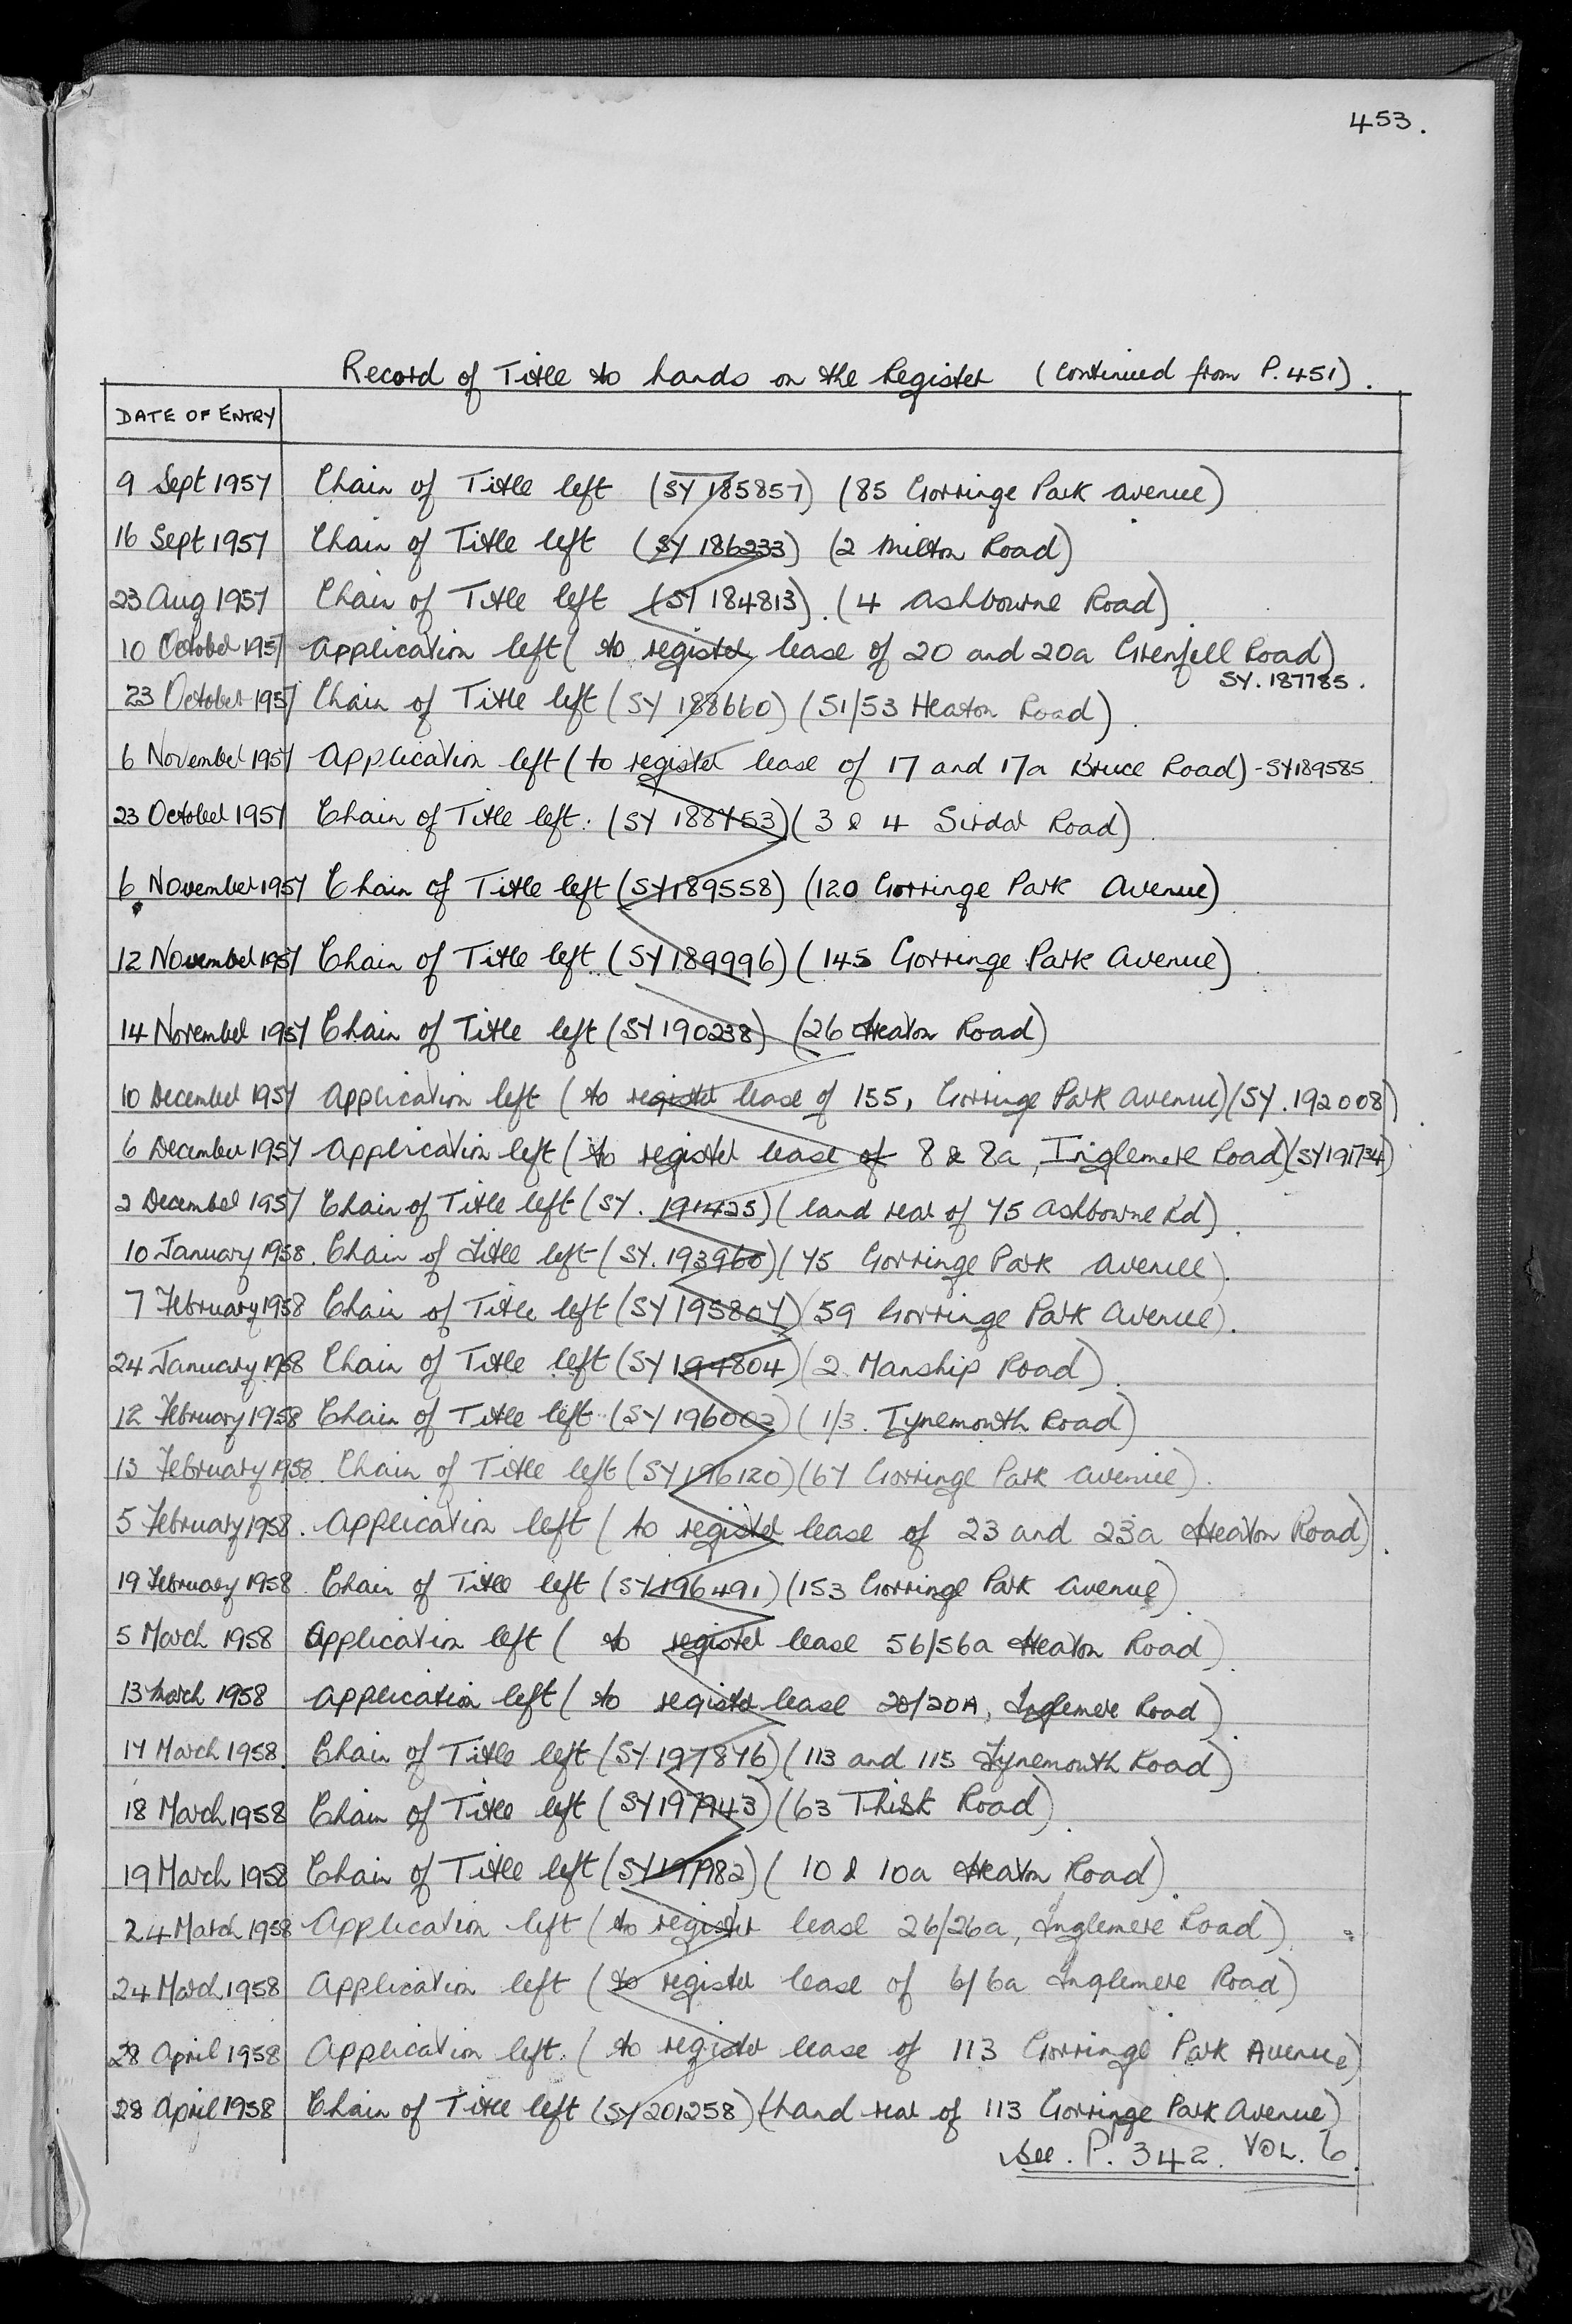 453.
Record of Title to Lands on the Register (Continued from P. 451).
DATE OF ENTRY
9 Sept 1957 Chain of Title left (SY 185857) (85 Gorringe Park Avenue)
16 Sept 1957 Chain of Title left (SY 186233) (2 Milton Road)
23 Aug 1957 Chain of Title left (SY 184813). (4 Ashbourne Road)
10 October 1957 Application left (to register lease of 20 and 20a Grenfell Road)
SY. 187785.
23 October 1957 Chain of Title left (SY 188660) (51/53 Heaton Road)
6 November 1957 Application left (to register lease of 17 and 17a Bruce Road) - SY189585.
23 October 1957 Chain of Title left. (SY 188753) (3 & 4 Sirdar Road)
6 November 1957 Chain of Title left (SY189558) (120 Gorringe Park Avenue)
12 November 1957 Chain of Title left (SY189996) (145 Gorringe Park Avenue)
14 November 1957 Chain of Title left (SY190238) (26 Heaton Road)
10 December 1957 Application left (to register lease of 155, Gorringe Park Avenue) (SY. 192008)
6 December 1957 Application left (to register lease of 8 & 8a, Inglemere Road) (SY191734)
2 December 1957 Chain of Title left (SY. 191425) (land rear of 75 Ashbourne Rd)
10 January 1958. Chain of Title left (SY. 193960) (75 Gorringe Park Avenue).
7 February 1958 Chain of Title left (SY195807) (59 Gorringe Park Avenue).
24 January 1958 Chain of Title left (SY194804) (2 Manship Road).
12 February 1958 Chain of Title left (SY196003) (1/3. Tynemouth Road)
13 February 1958. Chain of Title left (SY196120) (67 Gorringe Park Avenue).
5 February 1958. Application left (to register lease of 23 and 23a Heaton Road).
19 February 1958. Chain of Title left (SY196491) (153 Gorringe Park Avenue).
5 March 1958 Application left (to register lease 56/56a Heaton Road).
13 March 1958 Application left (to register lease 20/20A, Inglemere Road).
17 March 1958. Chain of Title left (SY197876) (113 and 115 Tynemouth Road)
18 March 1958 Chain of Title left (SY197943) (63 Thirsk Road).
19 March 1958 Chain of Title left (SY197982) (10 & 10a Heaton Road).
24 March 1958 Application left (to register lease 26/26a, Inglemere Road).
24 March 1958 Application left (to register lease of 6/6a Inglemere Road)
28 April 1958 Application left. (to register lease of 113 Gorringe Park Avenue)
28 April 1958 Chain of Title left (SY201258) (Land rear of 113 Gorringe Park Avenue)
See. P. 342. VOL. 6.